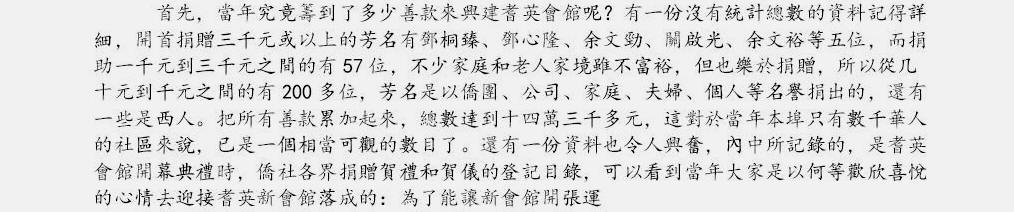 首先，當年究竟籌到了多少善款來興建耆英會館呢？有一份沒有統計總數的資料記得詳
細，開首捐贈三千元或以上的芳名有鄧桐臻、鄧心隆、余文勁、關啟光、余文裕等五位，而捐
助一千元到三千元之間的有 57 位，不少家庭和老人家境雖不富裕，但也樂於捐贈，所以從几
十元到千元之間的有 200 多位，芳名是以僑團、公司、家庭、夫婦、個人等名譽捐出的，還有
一些是西人。把所有善款累加起來，總數達到十四萬三千多元，這對於當年本埠只有數千華人
的社區來說，已是一個相當可觀的數目了。還有一份資料也令人興奮，內中所記錄的，是耆英
會館開幕典禮時，僑社各界捐贈賀禮和賀儀的登記目錄，可以看到當年大家是以何等歡欣喜悅
的心情去迎接耆英新會館落成的：為了能讓新會館開張運